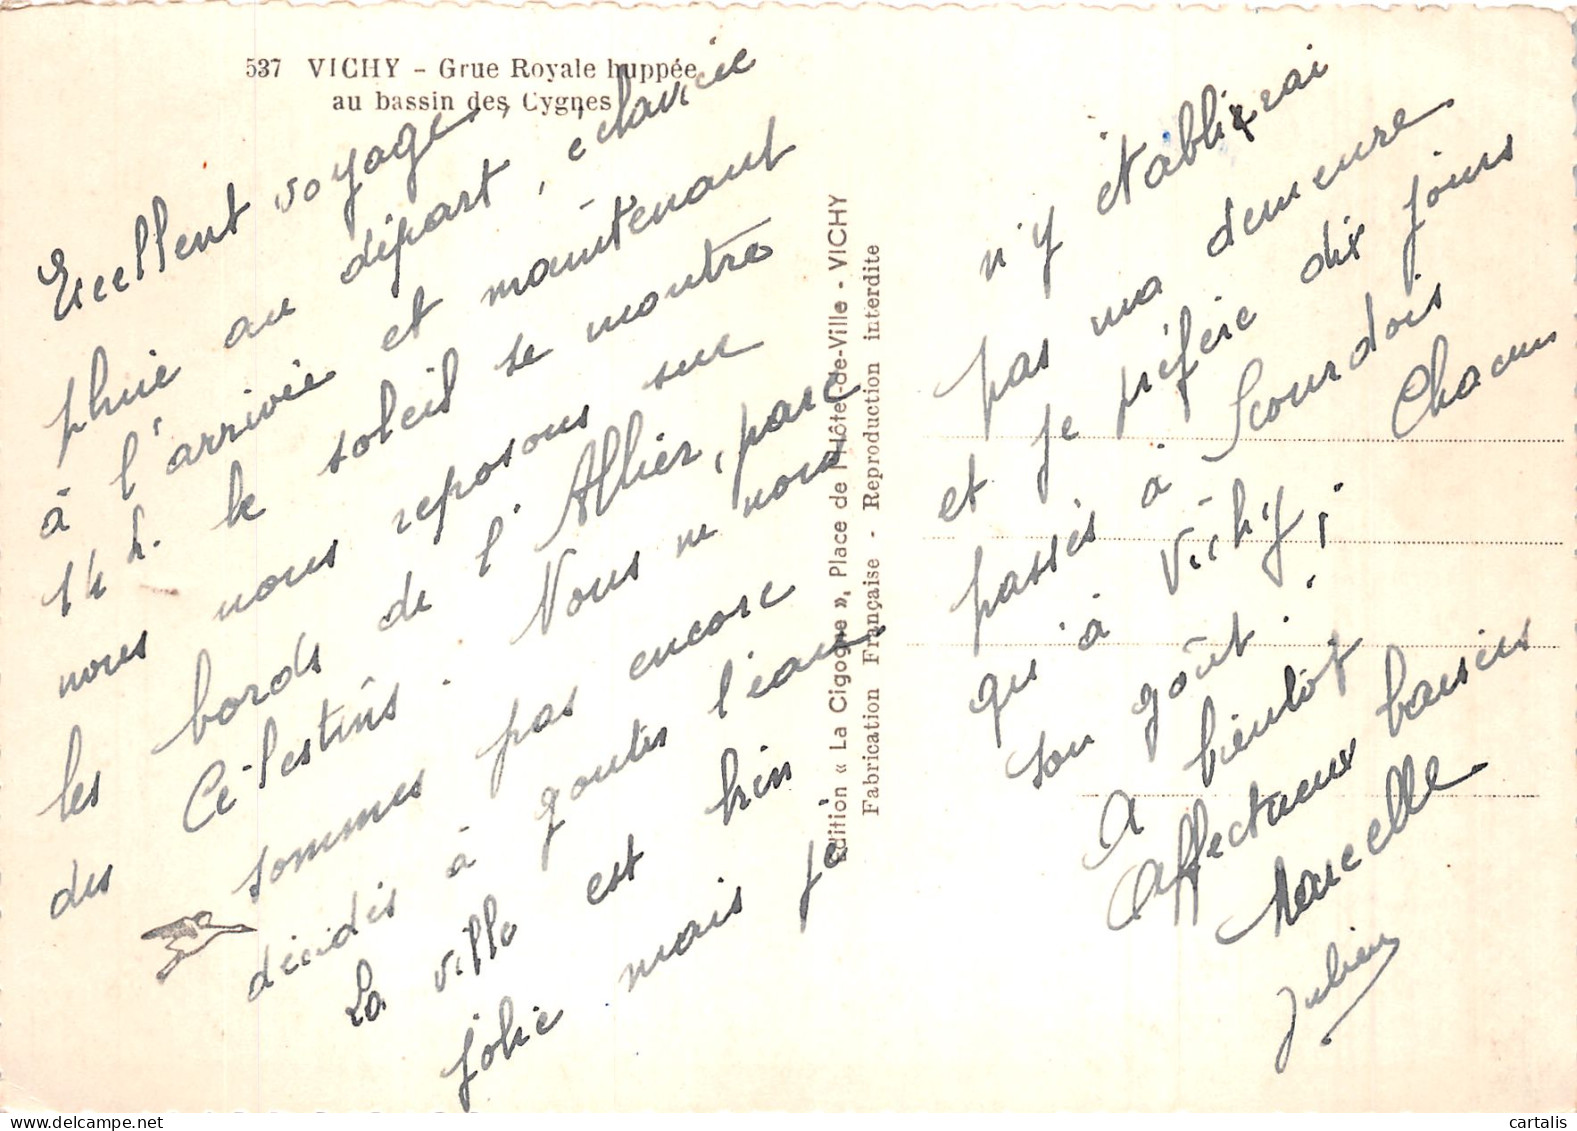 537 VICHY - Grue Royale huppée
au bassin des Cygnes
Excellent voyage,
pluie au départ, éclaircie
à l'arrivée et maintenant
14 h. le soleil se montre
nous nous reposons sur
les bords de l'Allier, parc
des Célestins. Nous ne nous
sommes pas encore
décidés à goûter l'eau
La ville est bien
jolie mais je
Edition « La Cigogne », Place de l'Hôtel-de-Ville - VICHY
Fabrication Française - Reproduction interdite
n'y établirai
pas ma demeure
et je préfère dix jours
passés à Scourdois
qu'à Vichy; Chacun
son goût!
A bientôt
Affectueux baisers
Marcelle
Julien
cartalis